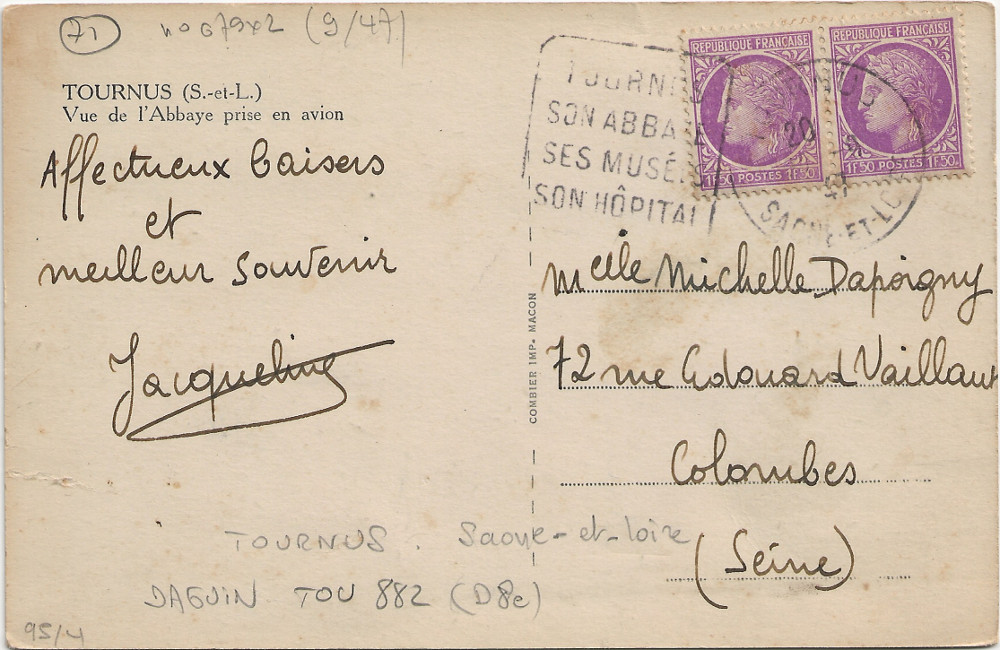 71
TOURNUS (S.-et-L.)
Vue de l'Abbaye prise en avion
Affectueux baisers
et
meilleur souvenir
Jacqueline
REPUBLIQUE FRANÇAISE
1F50 POSTES 1F50
REPUBLIQUE FRANÇAISE
1F50 POSTES 1F50
TOURNUS
SON ABBAYE
SES MUSÉES
SON HÔPITAL
20
SAONE-ET-LOIRE
COMBIER IMP. MACON
Melle Michelle Dapoigny
72 rue Edouard Vaillant
Colombes
(Seine)
TOURNUS. Saone-et-Loire
DAGUIN TOU 882 (D8e)
95/4